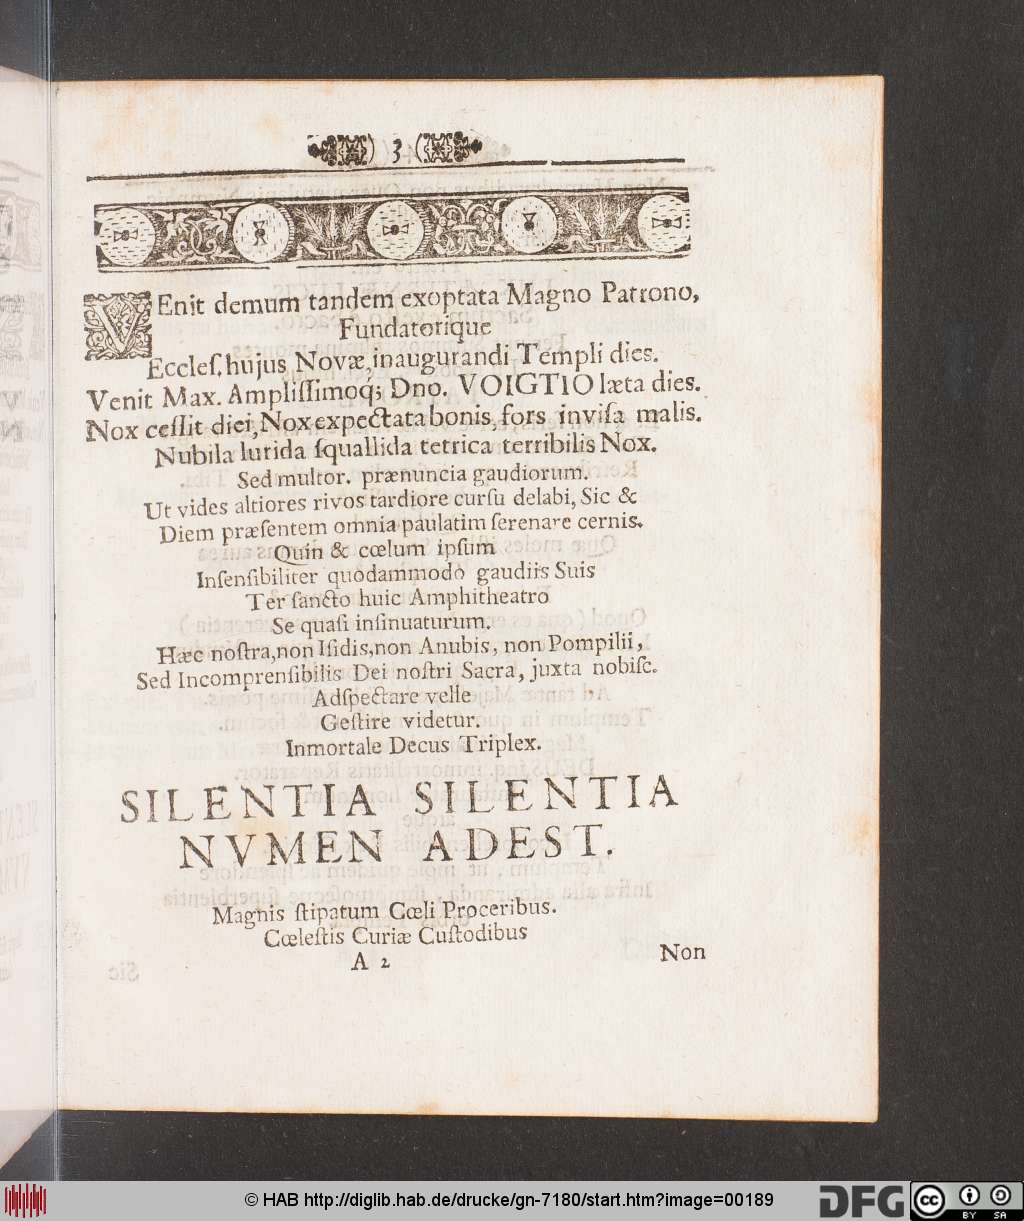 ) 3 (
VEnit demum tandem exoptata Magno Patrono,
Fundatorique
Eccleſ, hujus Novæ, inaugurandi Templi dies.
Venit Max. Ampliſſimoq́; Dno. VOIGTIO læta dies.
Nox ceſſit diei, Nox expectata bonis, fors inviſa malis.
Nubila lurida ſquallida tetrica terribilis Nox.
Sed multor. prænuncia gaudiorum.
Ut vides altiores rivos tardiore curſu delabi, Sic &
Diem præſentem omnia paulatim ſerenare cernis.
Quin & cœlum ipſum
Inſenſibiliter quodammodò gaudiis Suis
Ter ſancto huic Amphitheatro
Se quaſi inſinuaturum.
Hæc noſtra, non Iſidis, non Anubis, non Pompilii,
Sed Incomprenſibilis Dei noſtri Sacra, juxta nobiſc.
Adſpectare velle
Geſtire videtur.
Inmortale Decus Triplex.
SILENTIA SILENTIA
NVMEN ADEST.
Magnis ſtipatum Cœli Proceribus.
Cœleſtis Curiæ Cuſtodibus
A 2
Non
© HAB http://diglib.hab.de/drucke/gn-7180/start.htm?image=00189
DFG
cc BY SA